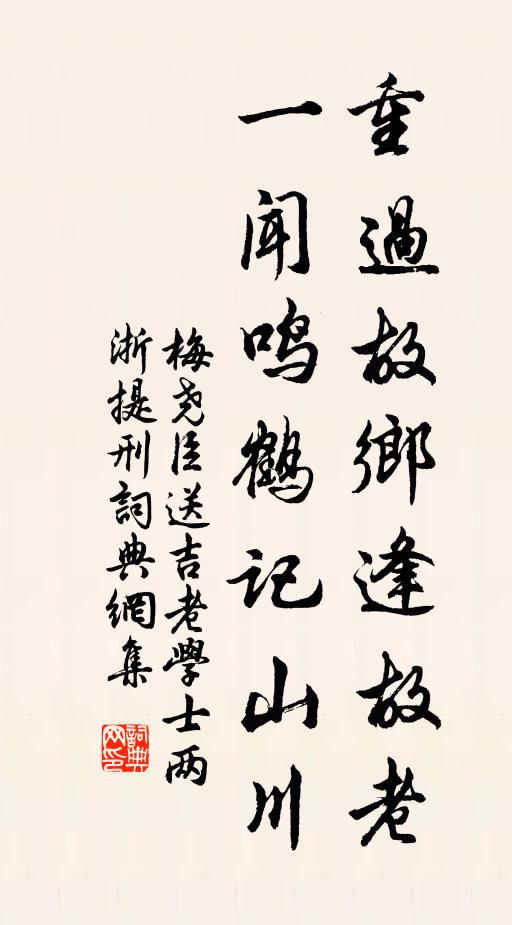 重過故鄉逢故老
一闻鸣鶴记山川
梅尧臣送吉老學士两
浙提刑詞典網集
詞典网印